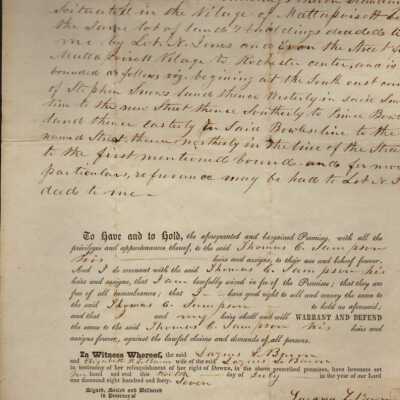 Scituated in the Village of Mattapoisett
the same lot of land & buildings deeded to
me by Lot N. Jones and is on the Street
Mattapoisett Village to Rochester center, and is
bounded as follows viz, begining at the South east
of Stephen Snows land thence Westerly in said Snows
line to the new Street thence Southerly to Prince
land thence easterly in said Bowles line to the
named Street, thence northerly in the line of the Street
to the first mentioned bound and for more
particulars, referance may be had to Lot N. J
ded to me
To Have and to Hold, the aforegranted and bargained Premises, with all the
privileges and appurtenances thereof, to the said Thomas C. Sampson
his heirs and assigns, to their use and behoof forever.
And I do covenant with the said Thomas C. Sampson his
heirs and assigns, that I am lawfully seized in fee of the Premises; that they are
free of all incumbrances; that I have good right to sell and convey the same to
the said Thomas C. Sampson to hold as aforesaid,
and that I and my heirs shall and will WARRANT AND DEFEND
the same to the said Thomas C. Sampson his heirs and
assigns forever, against the lawful claims and demands of all persons.
In Witness Whereof, the said
and wife of the said
in testimony of her relinquishment of her right of Dower, in the above prescribed premises, have hereunto set
hand and seal this day of July in the year of our Lord
one thousand eight hundred and forty Seven
Signed, Sealed and Delivered
in Presence of